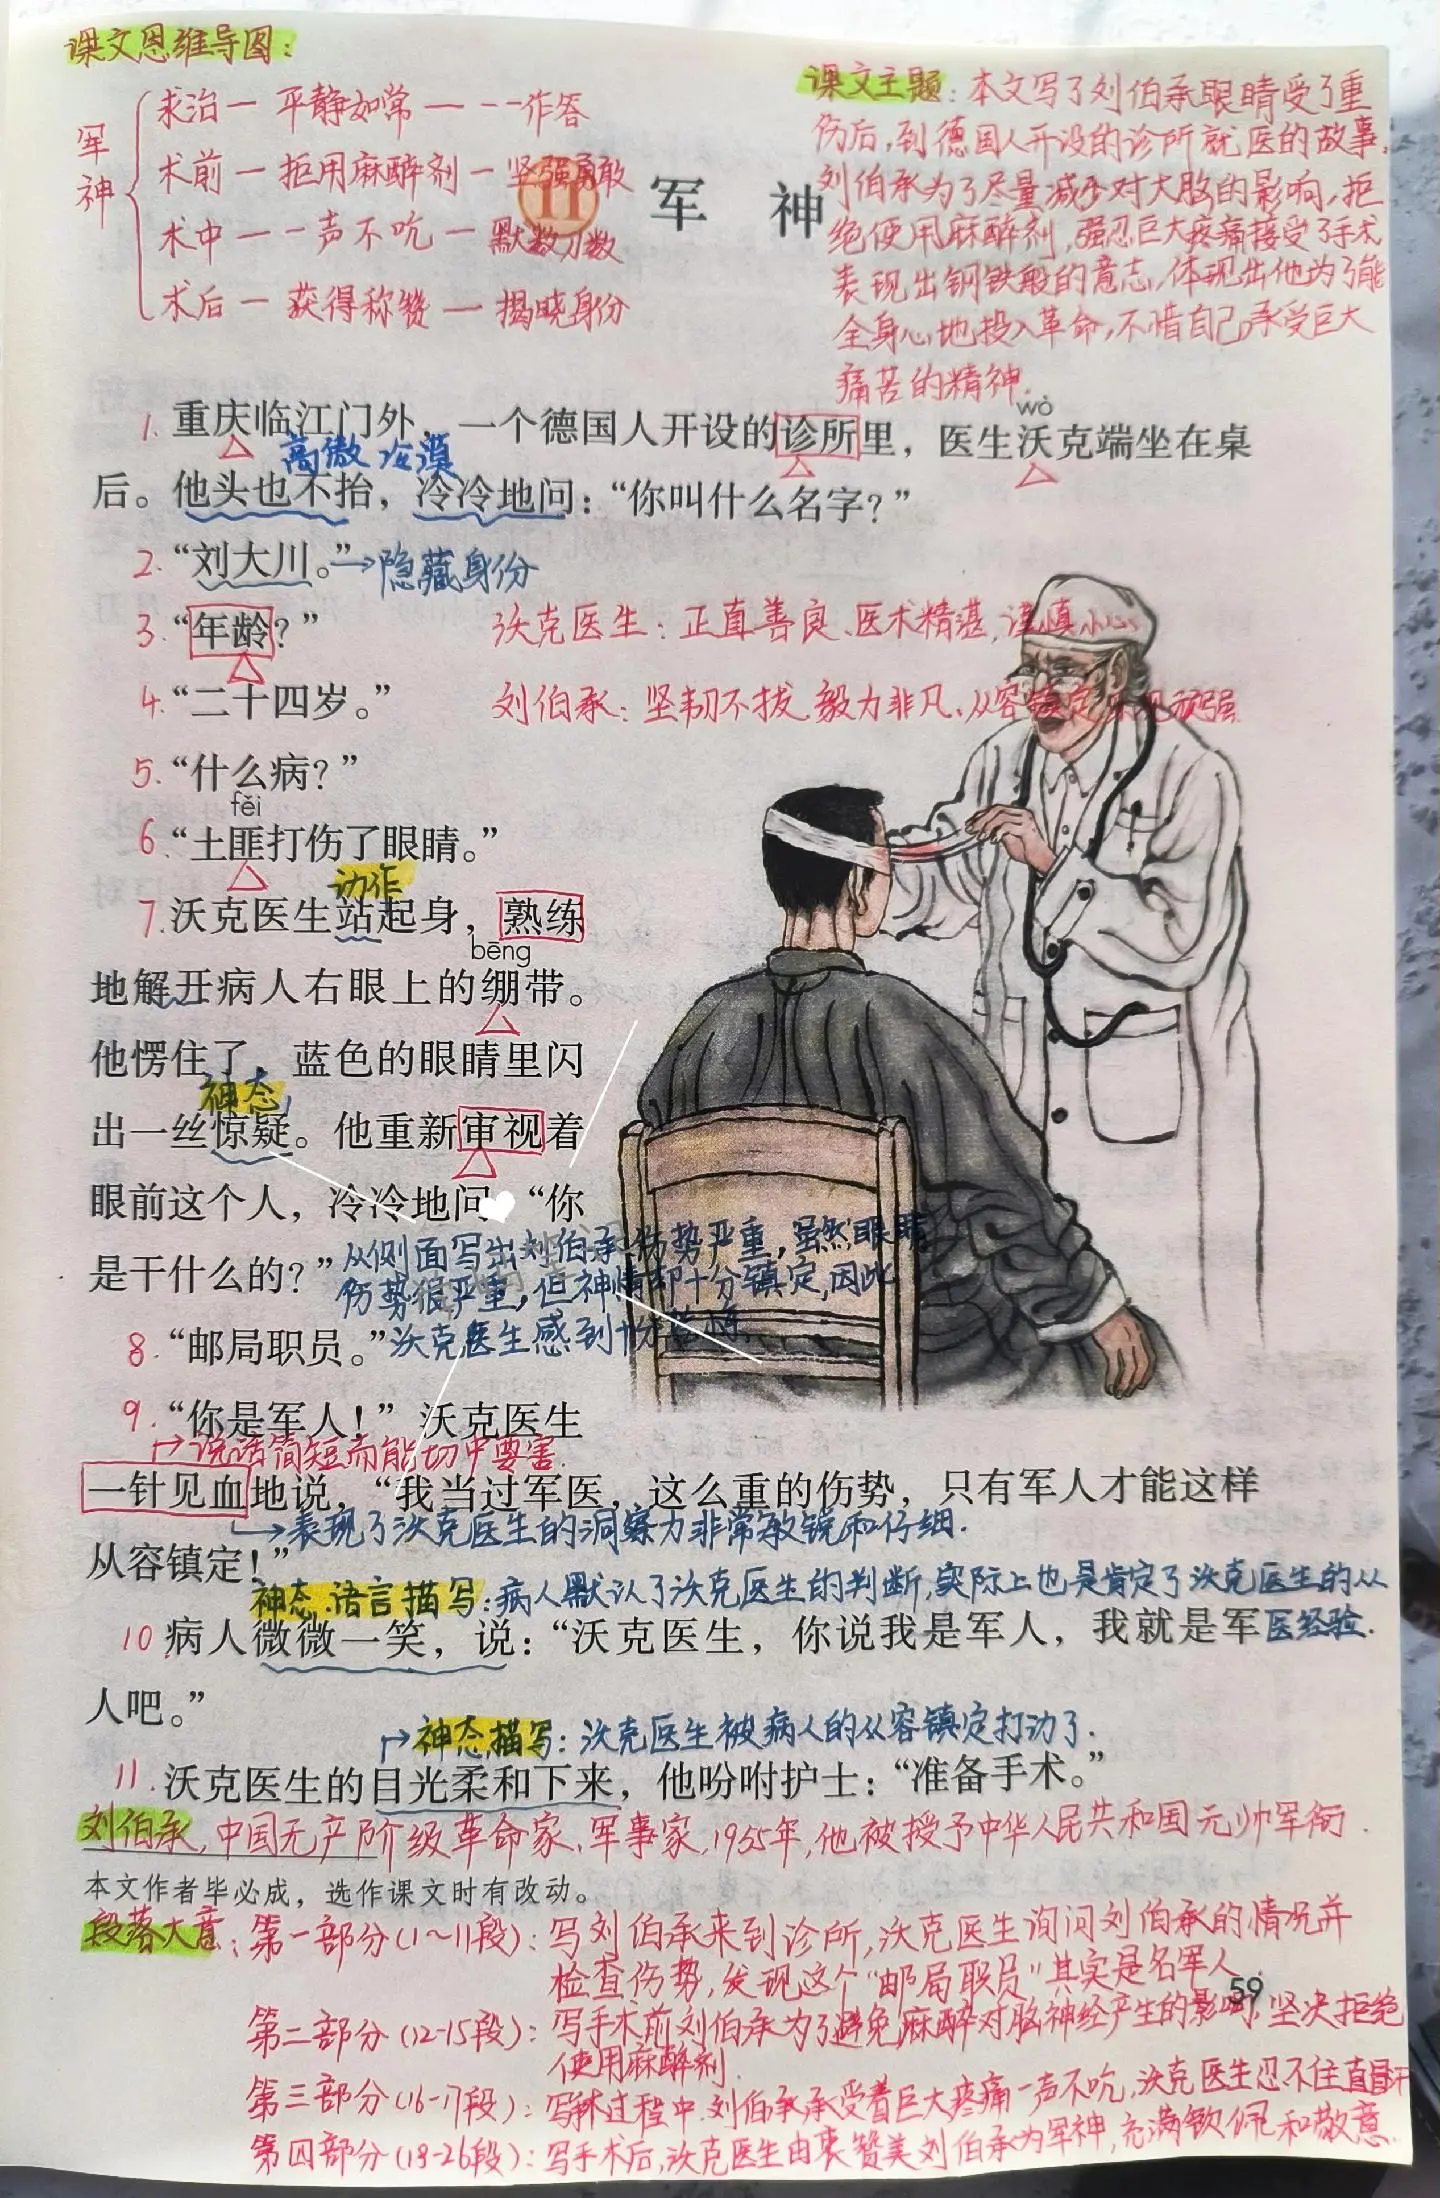 课文思维导图：
军神
求治一平静如常一--作答
术前一拒用麻醉剂一坚强勇敢
术中一一声不吭一默数刀数
术后一获得称赞一揭晓身份
课文主题：本文写了刘伯承眼睛受了重
伤后，到德国人开设的诊所就医的故事。
刘伯承为了尽量减少对大脑的影响，拒
绝使用麻醉剂，强忍巨大疼痛接受了手术
表现出钢铁般的意志，体现出他为了能
全身心地投入革命，不惜自己承受巨大
痛苦的精神.
11 军 神
wò
1. 重庆临江门外，一个德国人开设的诊所里，医生沃克端坐在桌
高傲冷漠
后。他头也不抬，冷冷地问：“你叫什么名字？”
2. “刘大川。”→隐藏身份
3. “年龄？”
沃克医生：正直善良、医术精湛，谨慎小心
4. “二十四岁。”
刘伯承：坚韧不拔、毅力非凡、从容镇定、顽强
5. “什么病？”
fěi
6 “土匪打伤了眼睛。”
动作
7. 沃克医生站起身，熟练
bēng
地解开病人右眼上的绷带。
他愣住了，蓝色的眼睛里闪
神态
出一丝惊疑。他重新审视着
眼前这个人，冷冷地问：“你
是干什么的？”
从侧面写出刘伯承伤势严重，虽然眼睛
伤势很严重，但神情却十分镇定，因此
沃克医生感到十分
8 “邮局职员。”
9. “你是军人！”沃克医生
→说话简短而能切中要害.
一针见血地说，“我当过军医，这么重的伤势，只有军人才能这样
→表现了沃克医生的洞察力非常敏锐和仔细.
从容镇定！”
神态、语言描写：病人默认了沃克医生的判断，实际上也是肯定了沃克医生的从
医经验.
10 病人微微一笑，说：“沃克医生，你说我是军人，我就是军
人吧。”
→神态描写：沃克医生被病人的从容镇定打动了.
11. 沃克医生的目光柔和下来，他吩咐护士：“准备手术。”
刘伯承，中国无产阶级革命家、军事家，1955年，他被授予中华人民共和国元帅军衔.
本文作者毕必成，选作课文时有改动。
段落大意：第一部分（1～11段）：写刘伯承来到诊所，沃克医生询问刘伯承的情况并
检查伤势，发现这个“邮局职员”其实是名军人
59
第二部分（12-15段）：写手术前刘伯承为了避免麻醉对脑神经产生的影响，坚决拒绝
使用麻醉剂.
第三部分（16-17段）：写手术过程中，刘伯承承受着巨大疼痛一声不吭，沃克医生忍不住直冒汗
第四部分（18-26段）：写手术后，沃克医生由衷赞美刘伯承为军神，充满钦佩和敬意.